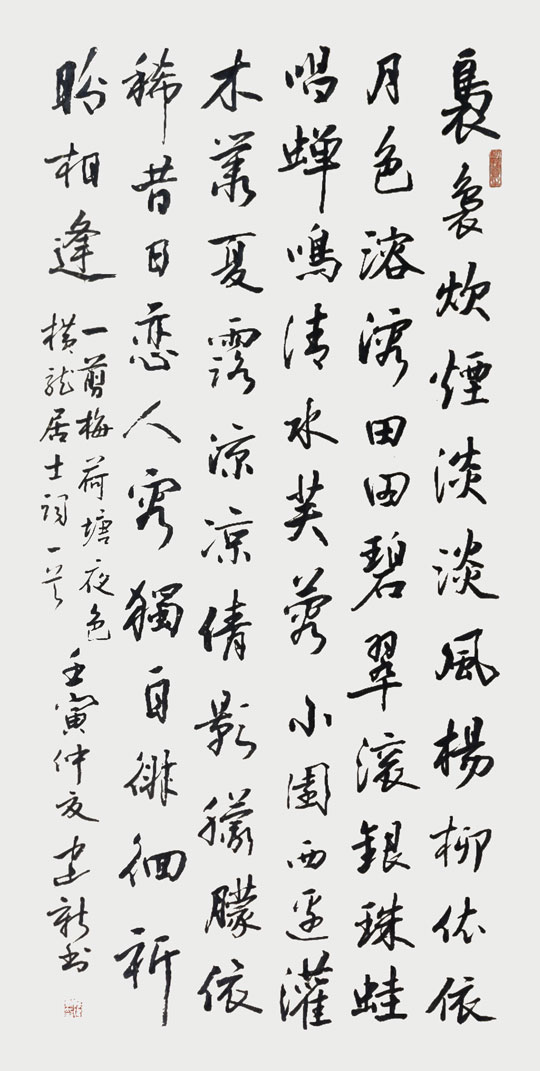 裊裊炊煙淡淡風楊柳依依
月色溶溶田田碧翠滾銀珠蛙
唱蟬鳴清水芙蓉小園西邊灌
木叢夏露涼凉倩影朦朦依
稀昔日恋人容獨自徘徊祈
盼相逢
一剪梅荷塘夜色
橫龙居士詞一首
壬寅仲夏建新书